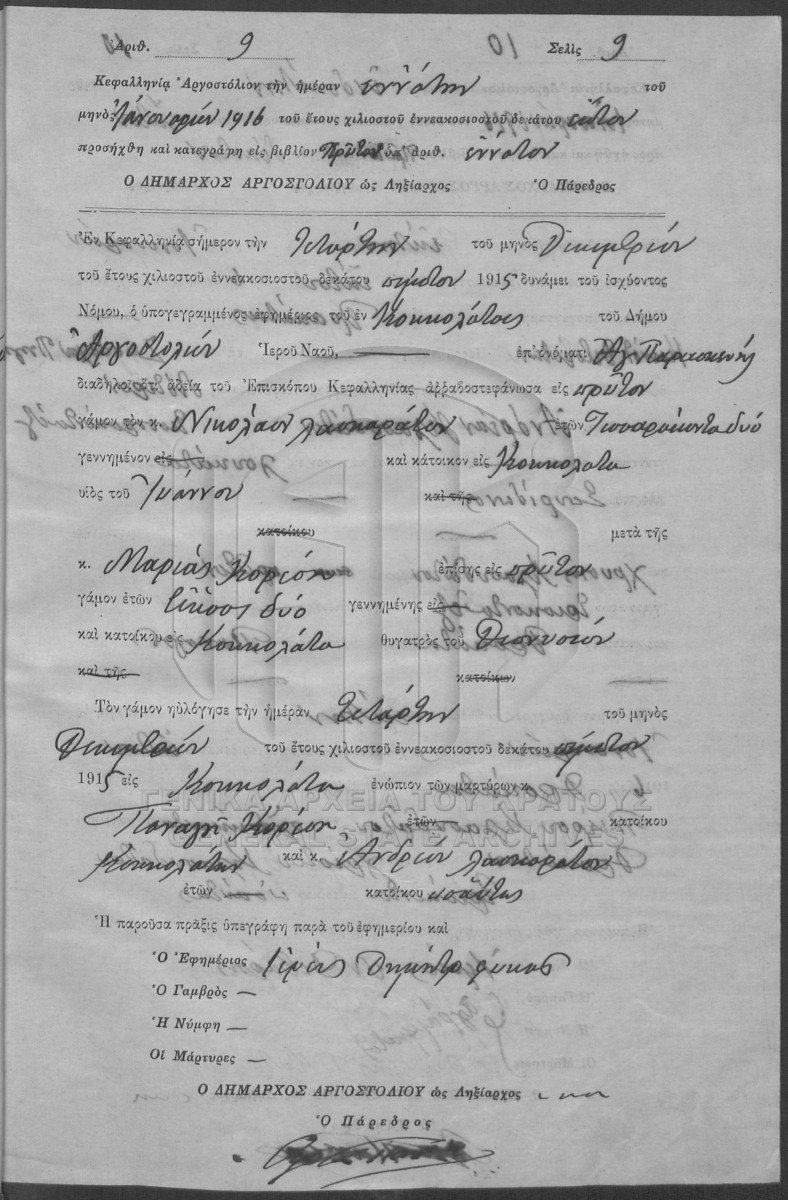 Ἀριθ. 9 10 Σελὶς 9
Κεφαλληνία Ἀργοστόλιον τὴν ἡμέραν ἐννάτην τοῦ
μηνὸς Ἰανουαρίου 1916 τοῦ ἔτους χιλιοστοῦ ἐννεακοσιοστοῦ δεκάτου ἕκτου
προσήχθη καὶ κατεγράφη εἰς βιβλίον πρῶτον ὑπ' ἀριθ. ἐννάτον
Ο ΔΗΜΑΡΧΟΣ ΑΡΓΟΣΤΟΛΙΟΥ ὡς Ληξίαρχος Ὁ Πάρεδρος
Ἐν Κεφαλληνίᾳ σήμερον τὴν Τετάρτην τοῦ μηνὸς Δεκεμβρίου
τοῦ ἔτους χιλιοστοῦ ἐννεακοσιοστοῦ δεκάτου πέμπτου 1915 δυνάμει τοῦ ἰσχύοντος
Νόμου, ὁ ὑπογεγραμμένος ἐφημέριος τοῦ ἐν Κοκκολάτας τοῦ Δήμου
Ἀργοστολίου Ἱεροῦ Ναοῦ, ἐπ' ὀνόματι Ἁγ Παρασκευῆς
διαδηλοῖ ὅτι ἀδείᾳ τοῦ Ἐπισκόπου Κεφαλληνίας ἀρραβοστεφάνωσα εἰς πρῶτον
γάμον τὸν κ. Νικόλαον Λασκαράτον ἐτῶν Τεσσαράκοντα δύο
γεννημένον εἰς καὶ κάτοικον εἰς Κοκκολάτα
υἱὸς τοῦ Ἰωάννου καὶ τῆς
κατοίκου μετὰ τῆς
κ. Μαρίας Κοριόνη ἐπίσης εἰς πρῶτον
γάμον ἐτῶν εἴκοσι δύο γεννημένης εἰς
καὶ κατοίκου εἰς Κοκκολάτα θυγατρὸς τοῦ Διονυσίου
καὶ τῆς κατοίκων
Τὸν γάμον ηὐλόγησε τὴν ἡμέραν Τετάρτην τοῦ μηνὸς
Δεκεμβρίου τοῦ ἔτους χιλιοστοῦ ἐννεακοσιοστοῦ δεκάτου πέμπτου
1915 εἰς Κοκκολάτα ἐνώπιον τῶν μαρτύρων κ.
ΓΕΝΙΚΑ ΑΡΧΕΙΑ ΤΟΥ ΚΡΑΤΟΥΣ
Παναγῆ ἐτῶν κατοίκου
GENERAL STATE ARCHIVES
καὶ κ. Ἀνδρέου Λασκαράτου
ἐτῶν κατοίκου
Ἡ παροῦσα πρᾶξις ὑπεγράφη παρὰ τοῦ ἐφημερίου καὶ
Ὁ Ἐφημέριος Ἱερεὺς
Ὁ Γαμβρὸς
Ἡ Νύμφη
Οἱ Μάρτυρες
Ο ΔΗΜΑΡΧΟΣ ΑΡΓΟΣΤΟΛΙΟΥ ὡς Ληξίαρχος
Ὁ Πάρεδρος